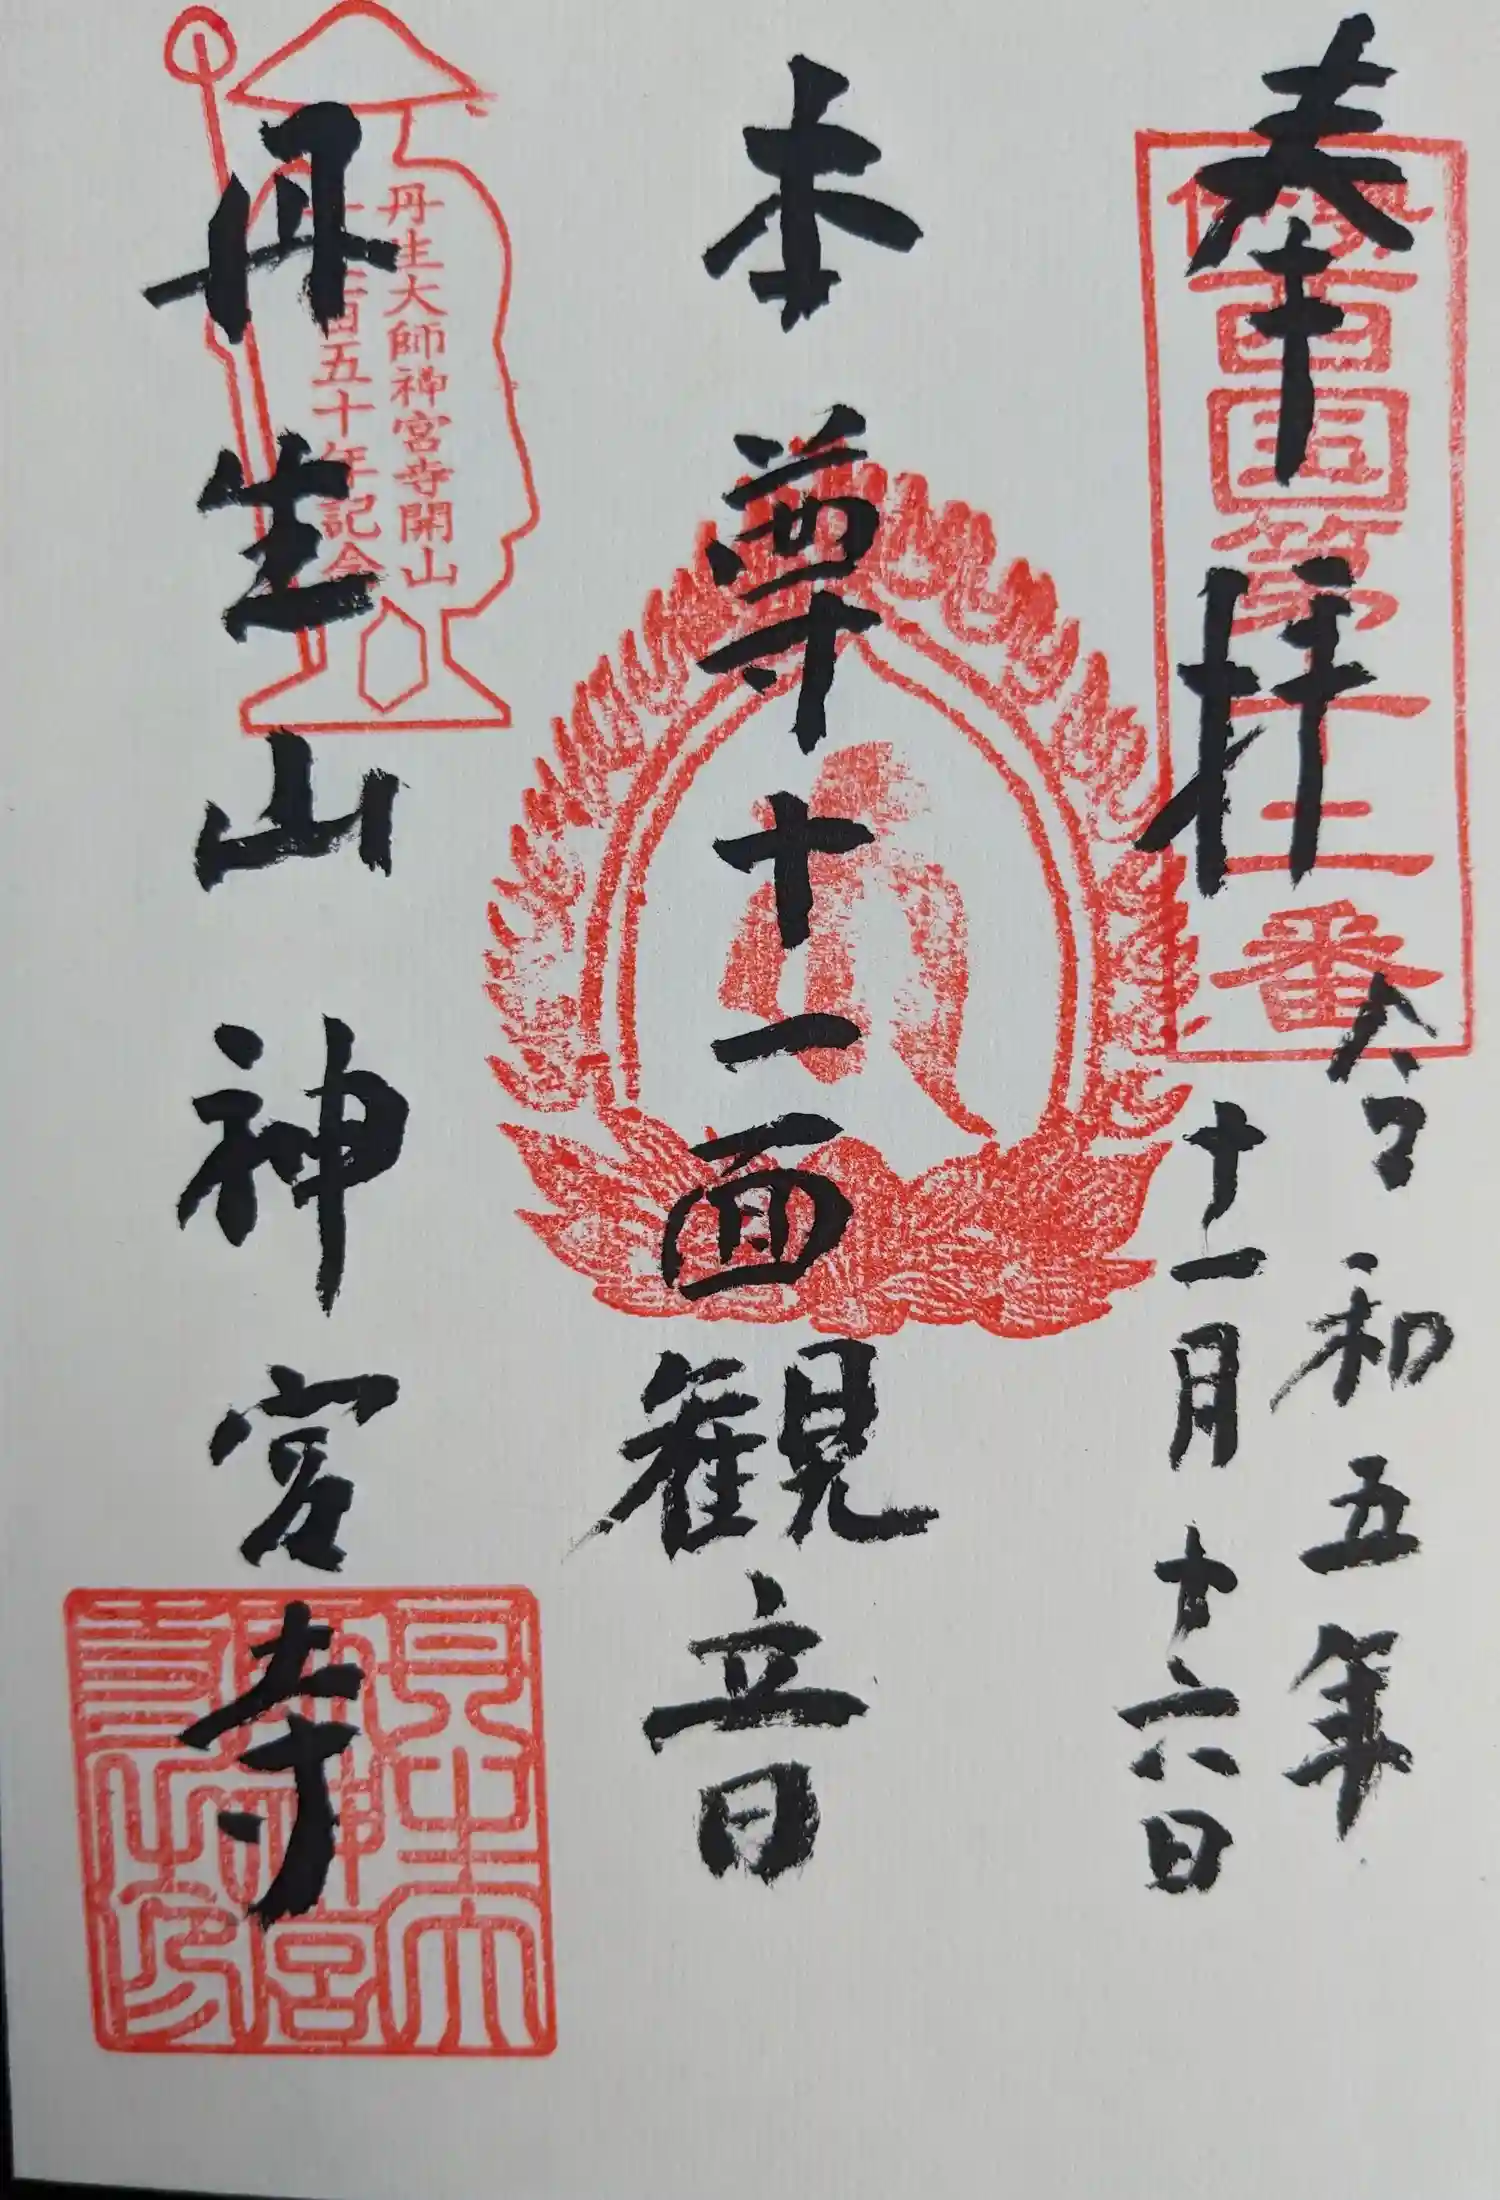 奉拝
伊勢西国第十一番
令和五年
十一月十六日
本尊十一面観音
丹生山神宮寺
丹生大師神宮寺開山
百五十年記念